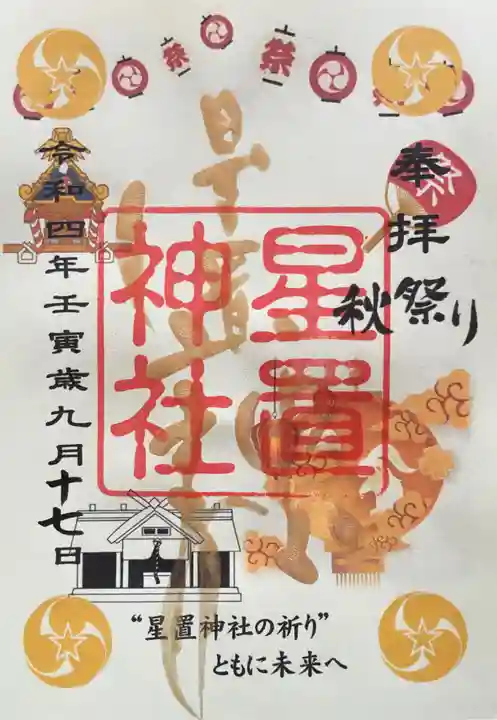 祭
祭
祭
奉拝
秋祭り
星置神社
星置
神社
令和四年壬寅歳九月十七日
“星置神社の祈り”
ともに未来へ